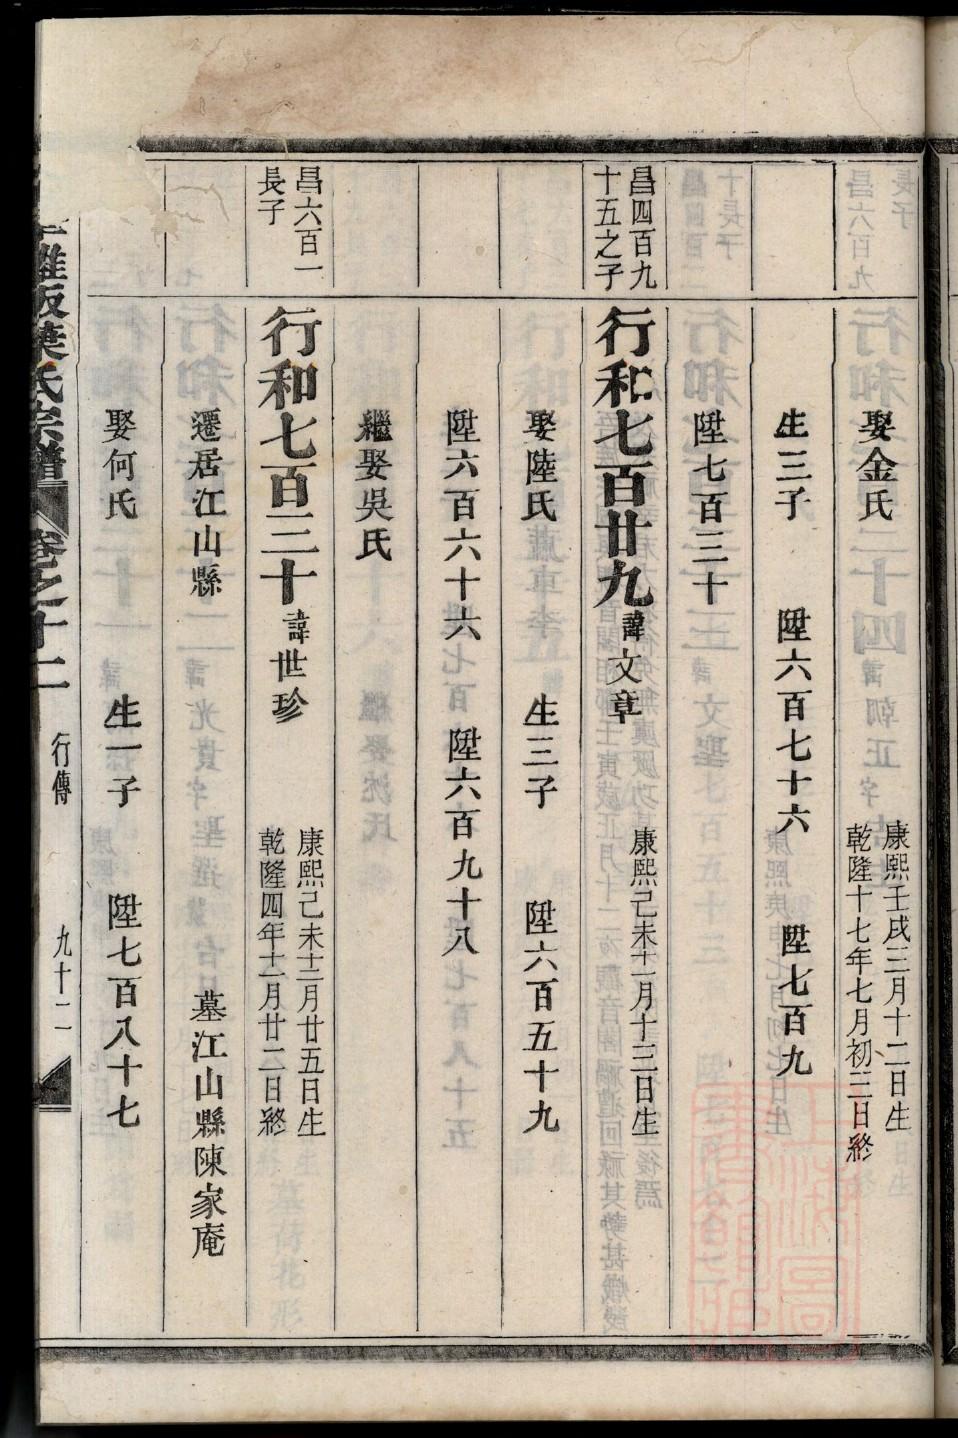 康熙壬戌三月十二日生
乾隆十七年七月初三日終
娶金氏
生三子 陞六百七十六 陞七百九
陞七百三十
昌四百九
十五之子
行和七百廿九 諱文章 康熙己未十一月十三日生
娶陸氏 生三子 陞六百五十九
陞六百六十六 陞六百九十八
繼娶吳氏
昌六百一
長子
行和七百三十 諱世珍
康熙己未十二月廿五日生
乾隆四年十二月廿二日終
遷居江山縣 墓江山縣陳家庵
娶何氏 生一子 陞七百八十七
葉氏宗譜 卷之十二 行傳 九十二